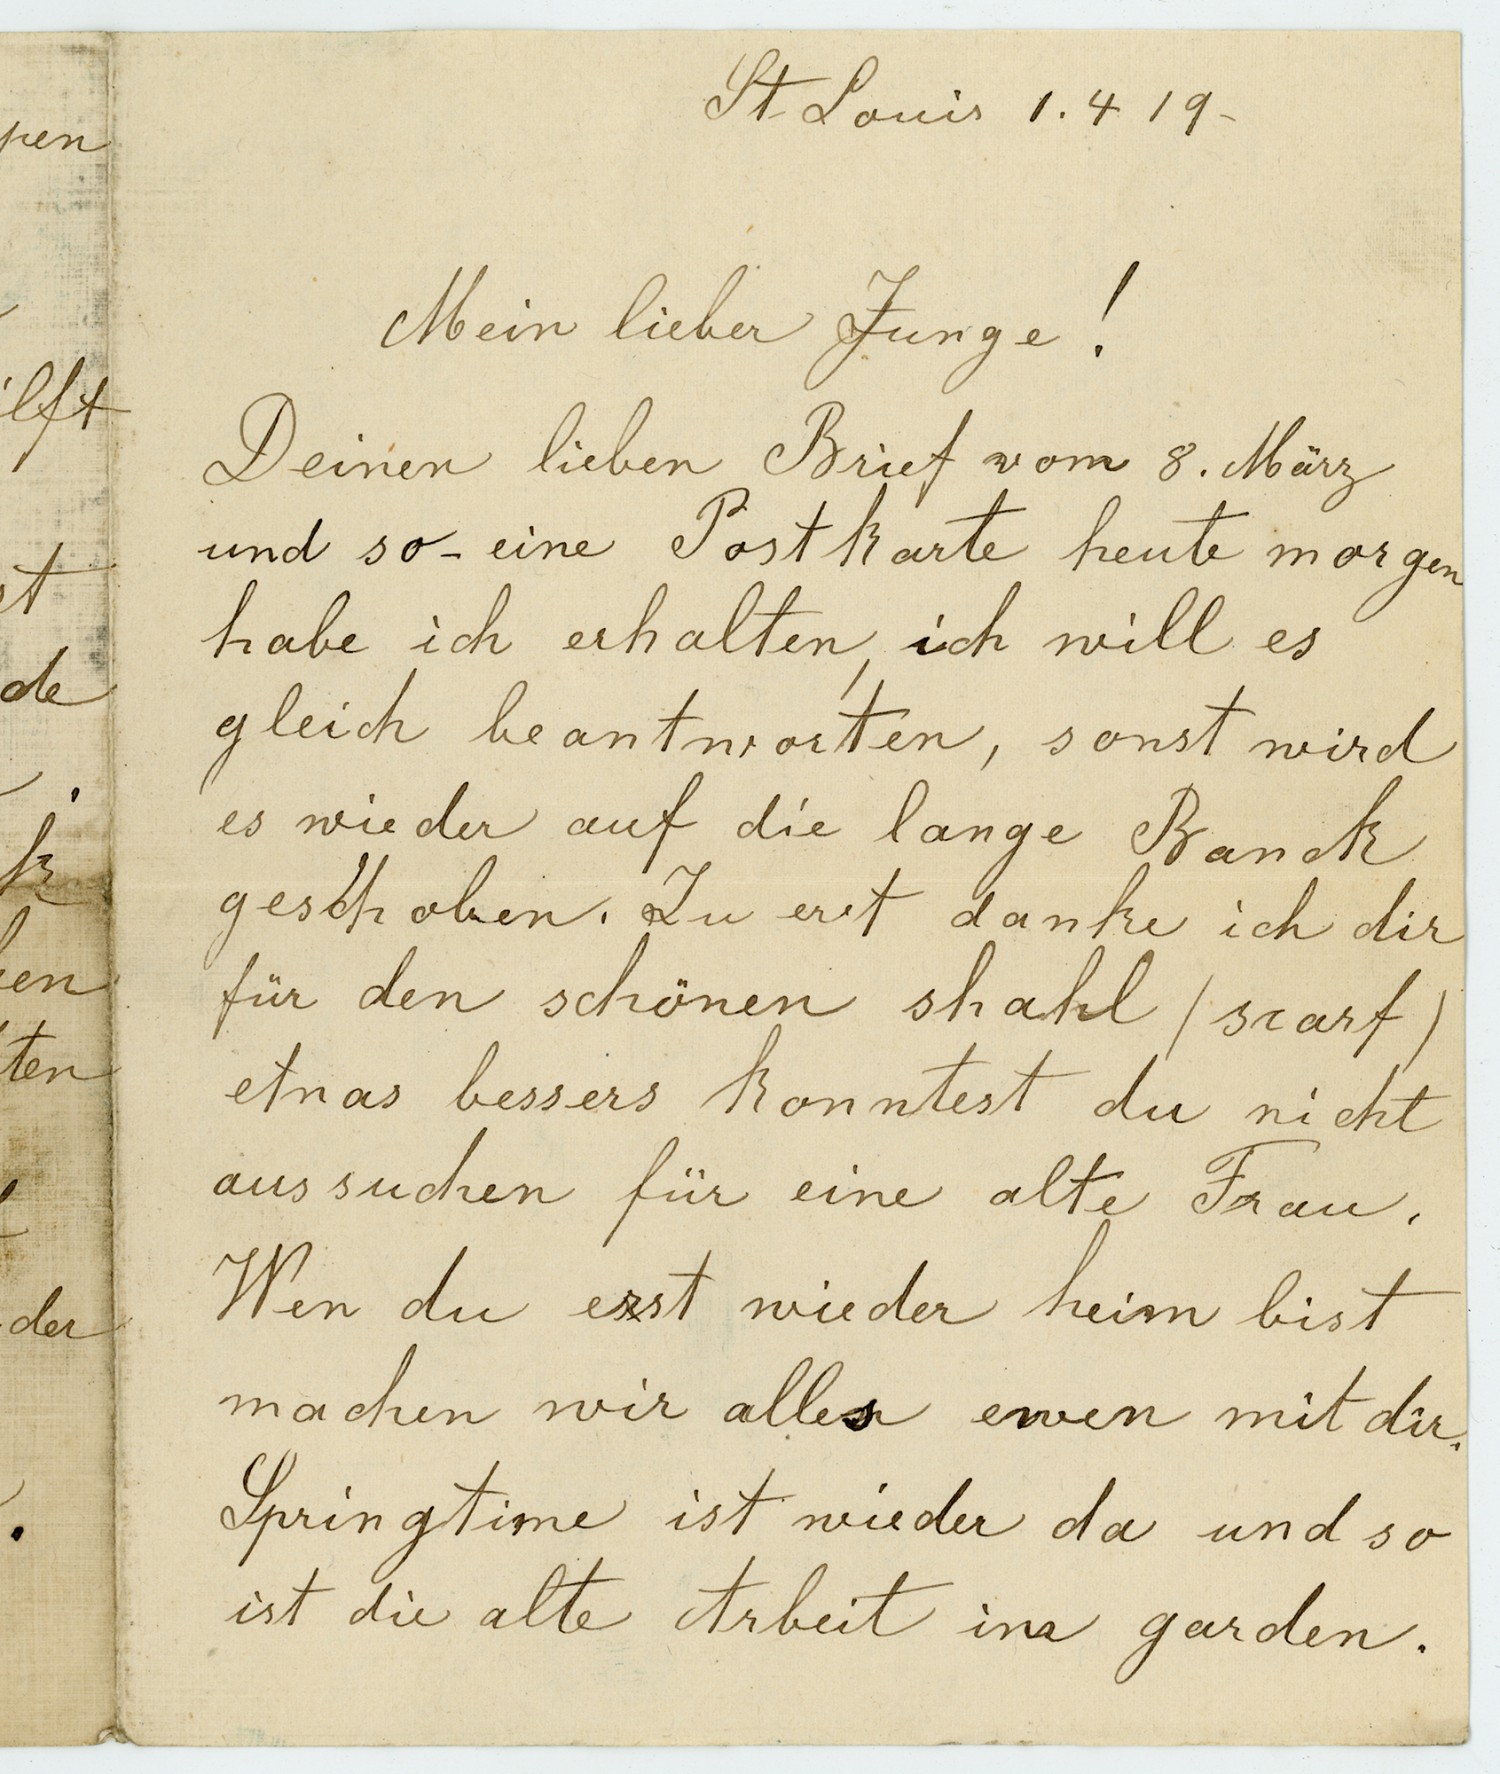 St. Louis 1. 4 19-
Mein lieber Junge!
Deinen lieben Brief vom 8. März
und so-eine Postkarte heute morgen
habe ich erhalten, ich will es
gleich beantworten, sonst wird
es wieder auf die lange Banck
geschoben. Zu erst danke ich dir
für den schönen shahl (scarf)
etwas bessers konntest du nicht
aussuchen für eine alte Frau.
Wen du erst wieder heim bist
machen wir alles ewen mit dir.
Springtime ist wieder da und so
ist die alte Arbeit im garden.
pen
ilft
st
de
k
en
ten
der